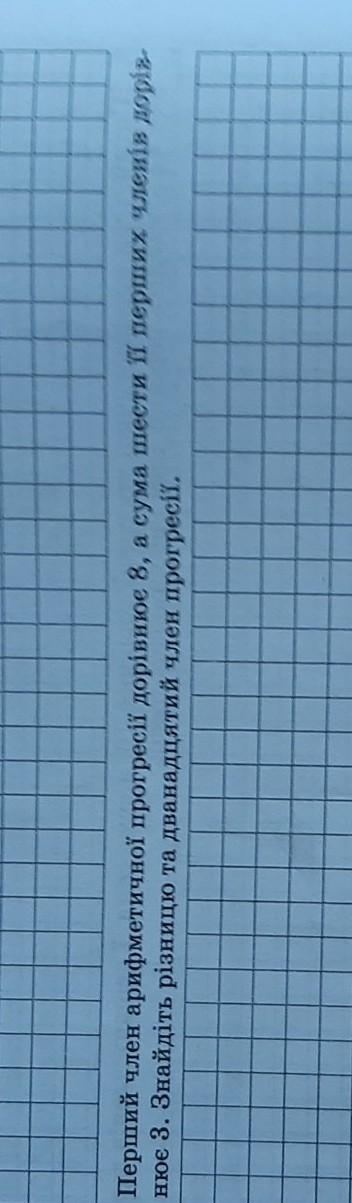 Перший член арифметичної прогресії дорівнює 8, а сума шести її перших членів дорів-
нює 3. Знайдіть різницю та дванадцятий член прогресії.